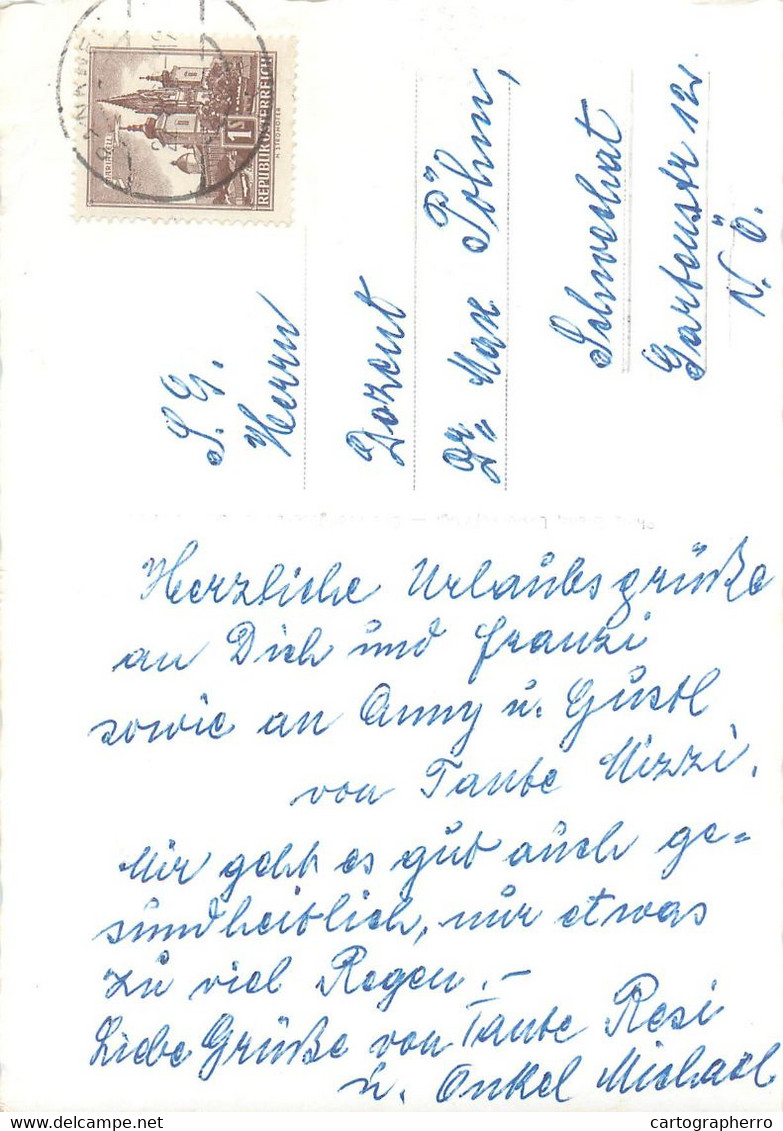 MARIAZELL
1S
REPUBLIK ÖSTERREICH
H. STROHOFER
S. G.
Herrn
Dozent
Dr. Max Böhm,
Schwechat
Gartenstr 12
N. Ö.
Herzliche Urlaubsgrüße
an Dich und Franzi
sowie an Anny u. Gustl
von Tante Mizzi.
Mir geht es gut auch ge=
sundheitlich, nur etwas
zu viel Regen. –
Liebe Grüße von Tante Resi
u. Onkel Michael
cartographerro